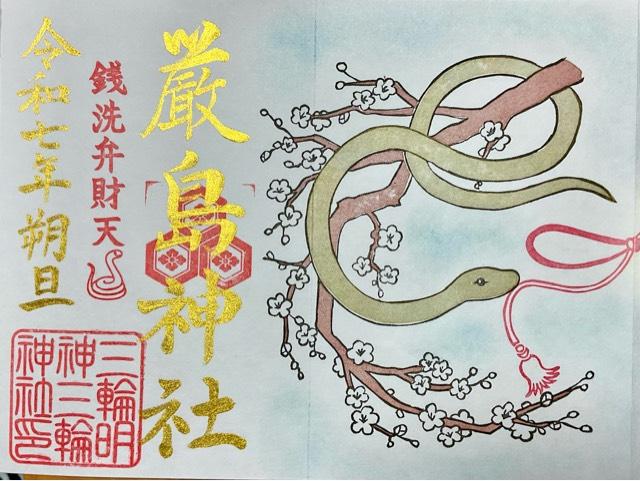 厳島神社
銭洗弁財天
令和七年 朔旦
三輪明
神三輪
神社印